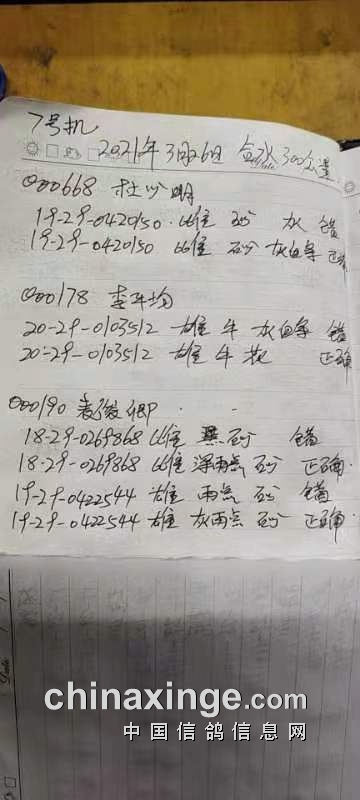 7号机
2021年3月26日 盒水300公里
000668 杜少明
19-29-0420150 雌 砂 灰 错
19-29-0420150 雌 砂 灰白条 正确
000178 李平均
20-29-0103512 雄 牛 灰白条 错
20-29-0103512 雄 牛 花 正确
000190 袁
18-29-0269868 雌 黑 砂 错
18-29-0269868 雌 深雨点 砂 正确
19-29-0422544 雄 雨点 砂 错
19-29-0422544 雄 灰雨点 砂 正确
chinaxinge.com
中国信鸽信息网